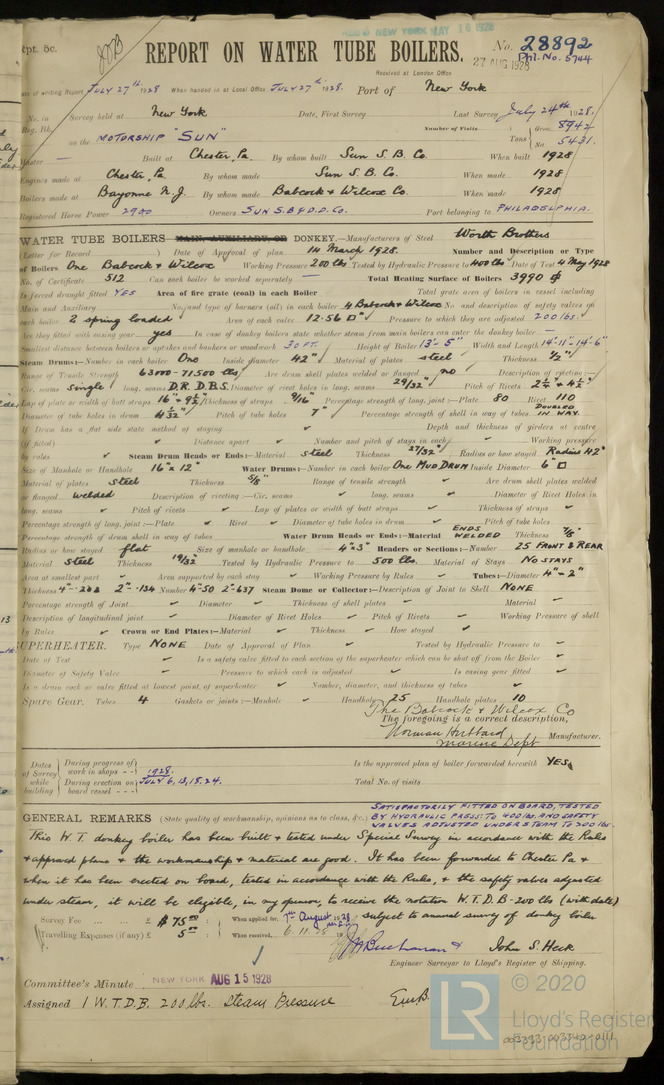 Rpt. 5c.
REC'D NEW YORK MAY 16 1928
REPORT ON WATER TUBE BOILERS.
No. 28892
Phl. No. 5744
27 AUG 1928
Received at London Office
Date of writing Report JULY 27th 1928 When handed in at Local Office JULY 27th 1928. Port of New York
No. in Reg. Bk. Survey held at New York Date, First Survey Last Survey July 24th 1928.
Number of Visits
on the MOTORSHIP "SUN" Tons Gross 8942 Net 5431.
Master — Built at Chester, Pa. By whom built Sun S. B. Co. When built 1928
Engines made at Chester, Pa By whom made Sun S. B. Co. When made 1928
Boilers made at Bayonne N.J. By whom made Babcock & Wilcox Co. When made 1928
Registered Horse Power 2900 Owners SUN S.B & D.D. Co. Port belonging to PHILADELPHIA.
WATER TUBE BOILERS MAIN, AUXILIARY, OR DONKEY.—Manufacturers of Steel Worth Brothers
(Letter for Record ) Date of Approval of plan 14 March 1928. Number and Description or Type
of Boilers One Babcock & Wilcox Working Pressure 200 lbs Tested by Hydraulic Pressure to 400 lbs Date of Test 4 May 1928
No. of Certificate 512 Can each boiler be worked separately — Total Heating Surface of Boilers 3990
Is forced draught fitted YES Area of fire grate (coal) in each Boiler Total grate area of boilers in vessel including
Main and Auxiliary No. and type of burners (oil) in each boiler 4 Babcock & Wilcox No. and description of safety valves on
each boiler 2 spring loaded Area of each valve 12.56 □" Pressure to which they are adjusted 200 lbs.
Are they fitted with easing gear yes In case of donkey boilers state whether steam from main boilers can enter the donkey boiler —
Smallest distance between boilers or uptakes and bunkers or woodwork 30 FT. Height of Boiler 13'-5" Width and Length 14'-11" 14'-6"
Steam Drums:—Number in each boiler One Inside diameter 42" Material of plates steel Thickness 1/2"
Range of Tensile Strength 63000-71500 lbs Are drum shell plates welded or flanged no Description of riveting:—
Cir. seams single long. seams D.R. D.B.S. Diameter of rivet holes in long. seams 29/32" Pitch of Rivets 2 1/4" & 4 1/2"
Lap of plate or width of butt straps 16" & 9 1/2" Thickness of straps 9/16" Percentage strength of long. joint:—Plate 80 Rivet 110
Diameter of tube holes in drum 4 1/32" Pitch of tube holes 7" Percentage strength of shell in way of tubes DOUBLED IN WAY.
If Drum has a flat side state method of staying ✓ Depth and thickness of girders at centre
(if fitted) ✓ Distance apart ✓ Number and pitch of stays in each ✓ Working pressure
by rules ✓ Steam Drum Heads or Ends:—Material steel Thickness 27/32" Radius or how stayed Radius 42"
Size of Manhole or Handhole 16" x 12" Water Drums:—Number in each boiler One MUD DRUM Inside Diameter 6" □
Material of plates steel Thickness 5/8" Range of tensile strength ✓ Are drum shell plates welded
or flanged welded Description of riveting:—Cir. seams ✓ long. seams ✓ Diameter of Rivet Holes in
long. seams ✓ Pitch of rivets ✓ Lap of plates or width of butt straps ✓ Thickness of straps ✓
Percentage strength of long. joint:—Plate ✓ Rivet ✓ Diameter of tube holes in drum ✓ Pitch of tube holes
Percentage strength of drum shell in way of tubes ✓ Water Drum Heads or Ends:—Material ENDS WELDED Thickness 7/8"
Radius or how stayed flat Size of manhole or handhole 4" x 3" Headers or Sections:—Number 25 FRONT & REAR
Material steel Thickness 19/32" Tested by Hydraulic Pressure to 500 lbs. Material of Stays NO STAYS
Area at smallest part ✓ Area supported by each stay ✓ Working Pressure by Rules ✓ Tubes:—Diameter 4" - 2"
Thickness 2" - .134 Number 4"-50 2"-637 Steam Dome or Collector:—Description of Joint to Shell NONE
Percentage strength of Joint ✓ Diameter ✓ Thickness of shell plates ✓ Material ✓
Description of longitudinal joint ✓ Diameter of Rivet Holes ✓ Pitch of Rivets ✓ Working Pressure of shell
by Rules ✓ Crown or End Plates:—Material ✓ Thickness ✓ How stayed ✓
SUPERHEATER. Type NONE Date of Approval of Plan ✓ Tested by Hydraulic Pressure to ✓
Date of Test ✓ Is a safety valve fitted to each section of the superheater which can be shut off from the Boiler ✓
Diameter of Safety Valve ✓ Pressure to which each is adjusted ✓ Is easing gear fitted ✓
Is a drain cock or valve fitted at lowest point of superheater ✓ Number, diameter, and thickness of tubes ✓
Spare Gear. Tubes 4 Gaskets or joints:—Manhole ✓ Handhole 25 Handhole plates 10
The Babcock & Wilcox Co
The foregoing is a correct description,
Norman Hubbard Manufacturer.
Marine Dept
Dates of Survey while building
During progress of work in shops - - 1928.
During erection on board vessel - - - JULY 6, 13, 18, 24.
Is the approved plan of boiler forwarded herewith YES
Total No. of visits
SATISFACTORILY FITTED ON BOARD, TESTED
GENERAL REMARKS (State quality of workmanship, opinions as to class, &c. BY HYDRAULIC PRESS: TO 400 lbs. AND SAFETY
VALVES ADJUSTED UNDER STEAM TO 200 lbs.
This W.T. donkey boiler has been built & tested under Special Survey in accordance with the Rules
& approved plans & the workmanship & material are good. It has been forwarded to Chester Pa &
when it has been erected on board, tested in accordance with the Rules, & the safety valves adjusted
under steam, it will be eligible, in my opinion, to receive the notation W.T.D.B-200 lbs (with date)
subject to annual survey of donkey boiler
Survey Fee ... £ $75.00 When applied for, 7th August 1928
Travelling Expenses (if any) £ 5.00 When received, 6.11.28
J. Buchanan & John S. Heck
Engineer Surveyor to Lloyd's Register of Shipping.
Committee's Minute NEW YORK AUG 15 1928
Assigned 1 W.T.D.B. 200 lbs. Steam Pressure
© 2020
LR
Lloyd's Register
Foundation
003393-003340-0111